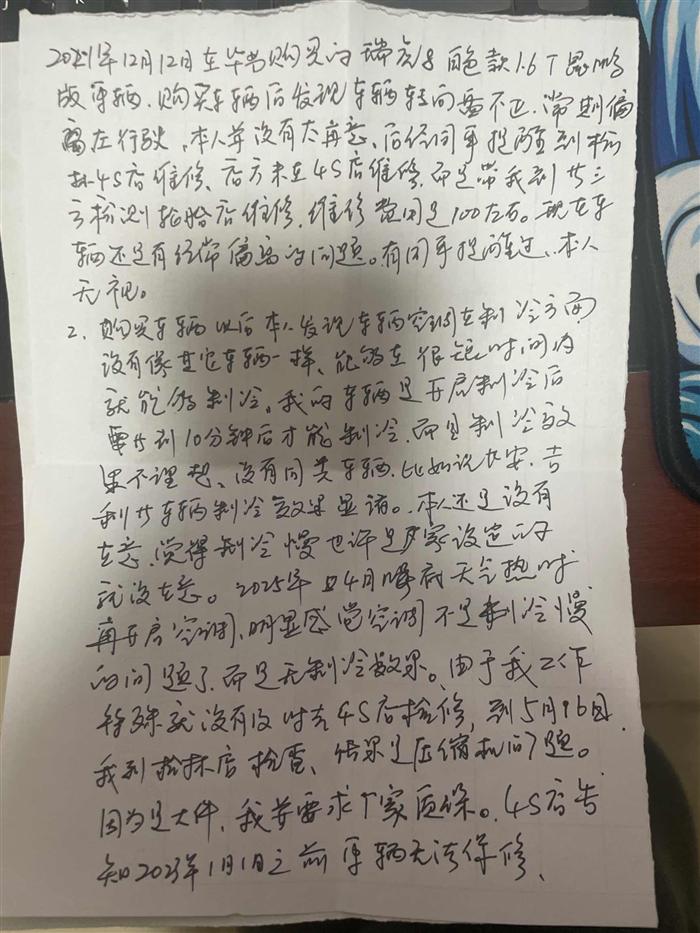 2021年12月12日在毕节购买的瑞虎8白色款1.6T昆鹏
版车辆，购买车辆后发现车辆转向盘不正，常期偏
离左行驶，本人并没有太再意、后经同事提醒到
4S店维修、店方未在4S店维修，而是带我到
方检测轮胎店维修，维修费用是100左右。现在车
辆还是有经常偏离的问题。有同事提醒过、本人
无视。
2、购买车辆以后本人发现车辆空调在制冷方面
没有像其它车辆一样、能够在很短时间内
就能够制冷。我的车辆是开启制冷后
要等到10分钟后才能制冷，而且制冷效
果不理想、没有同类车辆，比如说长安、吉
利等车辆制冷效果显诸。本人还是没有
在意，觉得制冷慢也许是厂家设定的
就没在意。2025年4月 天气热时
再开启空调，明显感觉空调不是制冷慢
的问题了，而是无制冷效果。由于我工作
特殊就没有及时去4S店检修，到5月16日
我到 店检查、结果是压缩机问题。
因为是大件，我并要求厂家质保。4S店告
知2023年1月1日之前车辆无法保修、